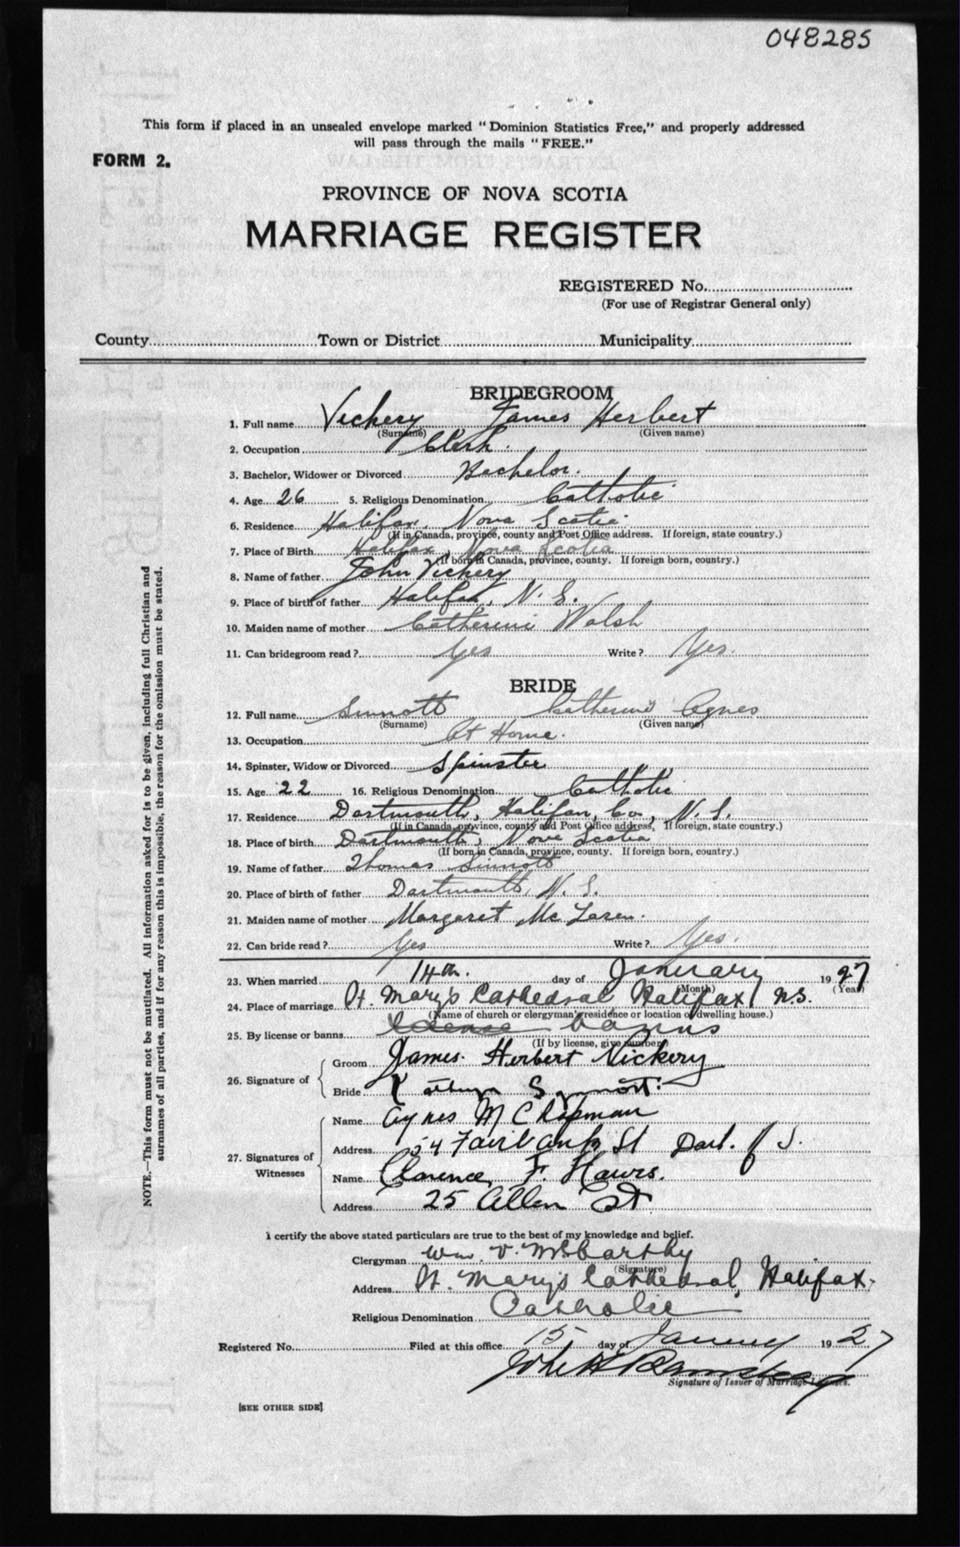 048285
This form if placed in an unsealed envelope marked "Dominion Statistics Free," and properly addressed
will pass through the mails "FREE."
FORM 2.
PROVINCE OF NOVA SCOTIA
MARRIAGE REGISTER
REGISTERED No.
(For use of Registrar General only)
County Town or District Municipality
BRIDEGROOM
1. Full name Vickery James Herbert
(Surname) (Given name)
2. Occupation Clerk.
3. Bachelor, Widower or Divorced Bachelor.
4. Age 26 5. Religious Denomination Catholic
6. Residence Halifax, Nova Scotia
(If in Canada, province, county and Post Office address. If foreign, state country.)
7. Place of Birth Halifax, Nova Scotia
(If born in Canada, province, county. If foreign born, country.)
8. Name of father John Vickery
9. Place of birth of father Halifax, N. S.
10. Maiden name of mother Catherine Walsh
11. Can bridegroom read? Yes Write? Yes.
BRIDE
12. Full name Sinnott Catherine Agnes
(Surname) (Given name)
13. Occupation At Home.
14. Spinster, Widow or Divorced Spinster
15. Age 22 16. Religious Denomination Catholic
17. Residence Dartmouth, Halifax, Co., N. S.
(If in Canada, province, county and Post Office address, If foreign, state country.)
18. Place of birth Dartmouth, Nova Scotia
(If born in Canada, province, county. If foreign born, country.)
19. Name of father Thomas Sinnott
20. Place of birth of father Dartmouth, N. S.
21. Maiden name of mother Margaret McLaren.
22. Can bride read? Yes Write? Yes.
23. When married 14th. day of January 1927
(Month) (Year)
24. Place of marriage St. Mary's Cathedral Halifax N.S.
(Name of church or clergyman's residence or location of dwelling house.)
25. By license or banns license banns
(If by license, give number)
26. Signature of Groom James Herbert Vickery
Bride Synnott
27. Signatures of Witnesses Name Agnes M Chapman
Address 54 St Dart.
Name Clarence F.
Address 25 Allen St
I certify the above stated particulars are true to the best of my knowledge and belief.
Clergyman Wm. V. McCarthy
(Signature)
Address St. Mary's Cathedral, Halifax.
Religious Denomination Catholic
Registered No. Filed at this office 15 day of January 1927
Signature of Issuer of Marriage Licenses.
[SEE OTHER SIDE]
NOTE.—This form must not be mutilated. All information asked for is to be given, including full Christian and
surnames of all parties, and if for any reason this is impossible, the reason for the omission must be stated.